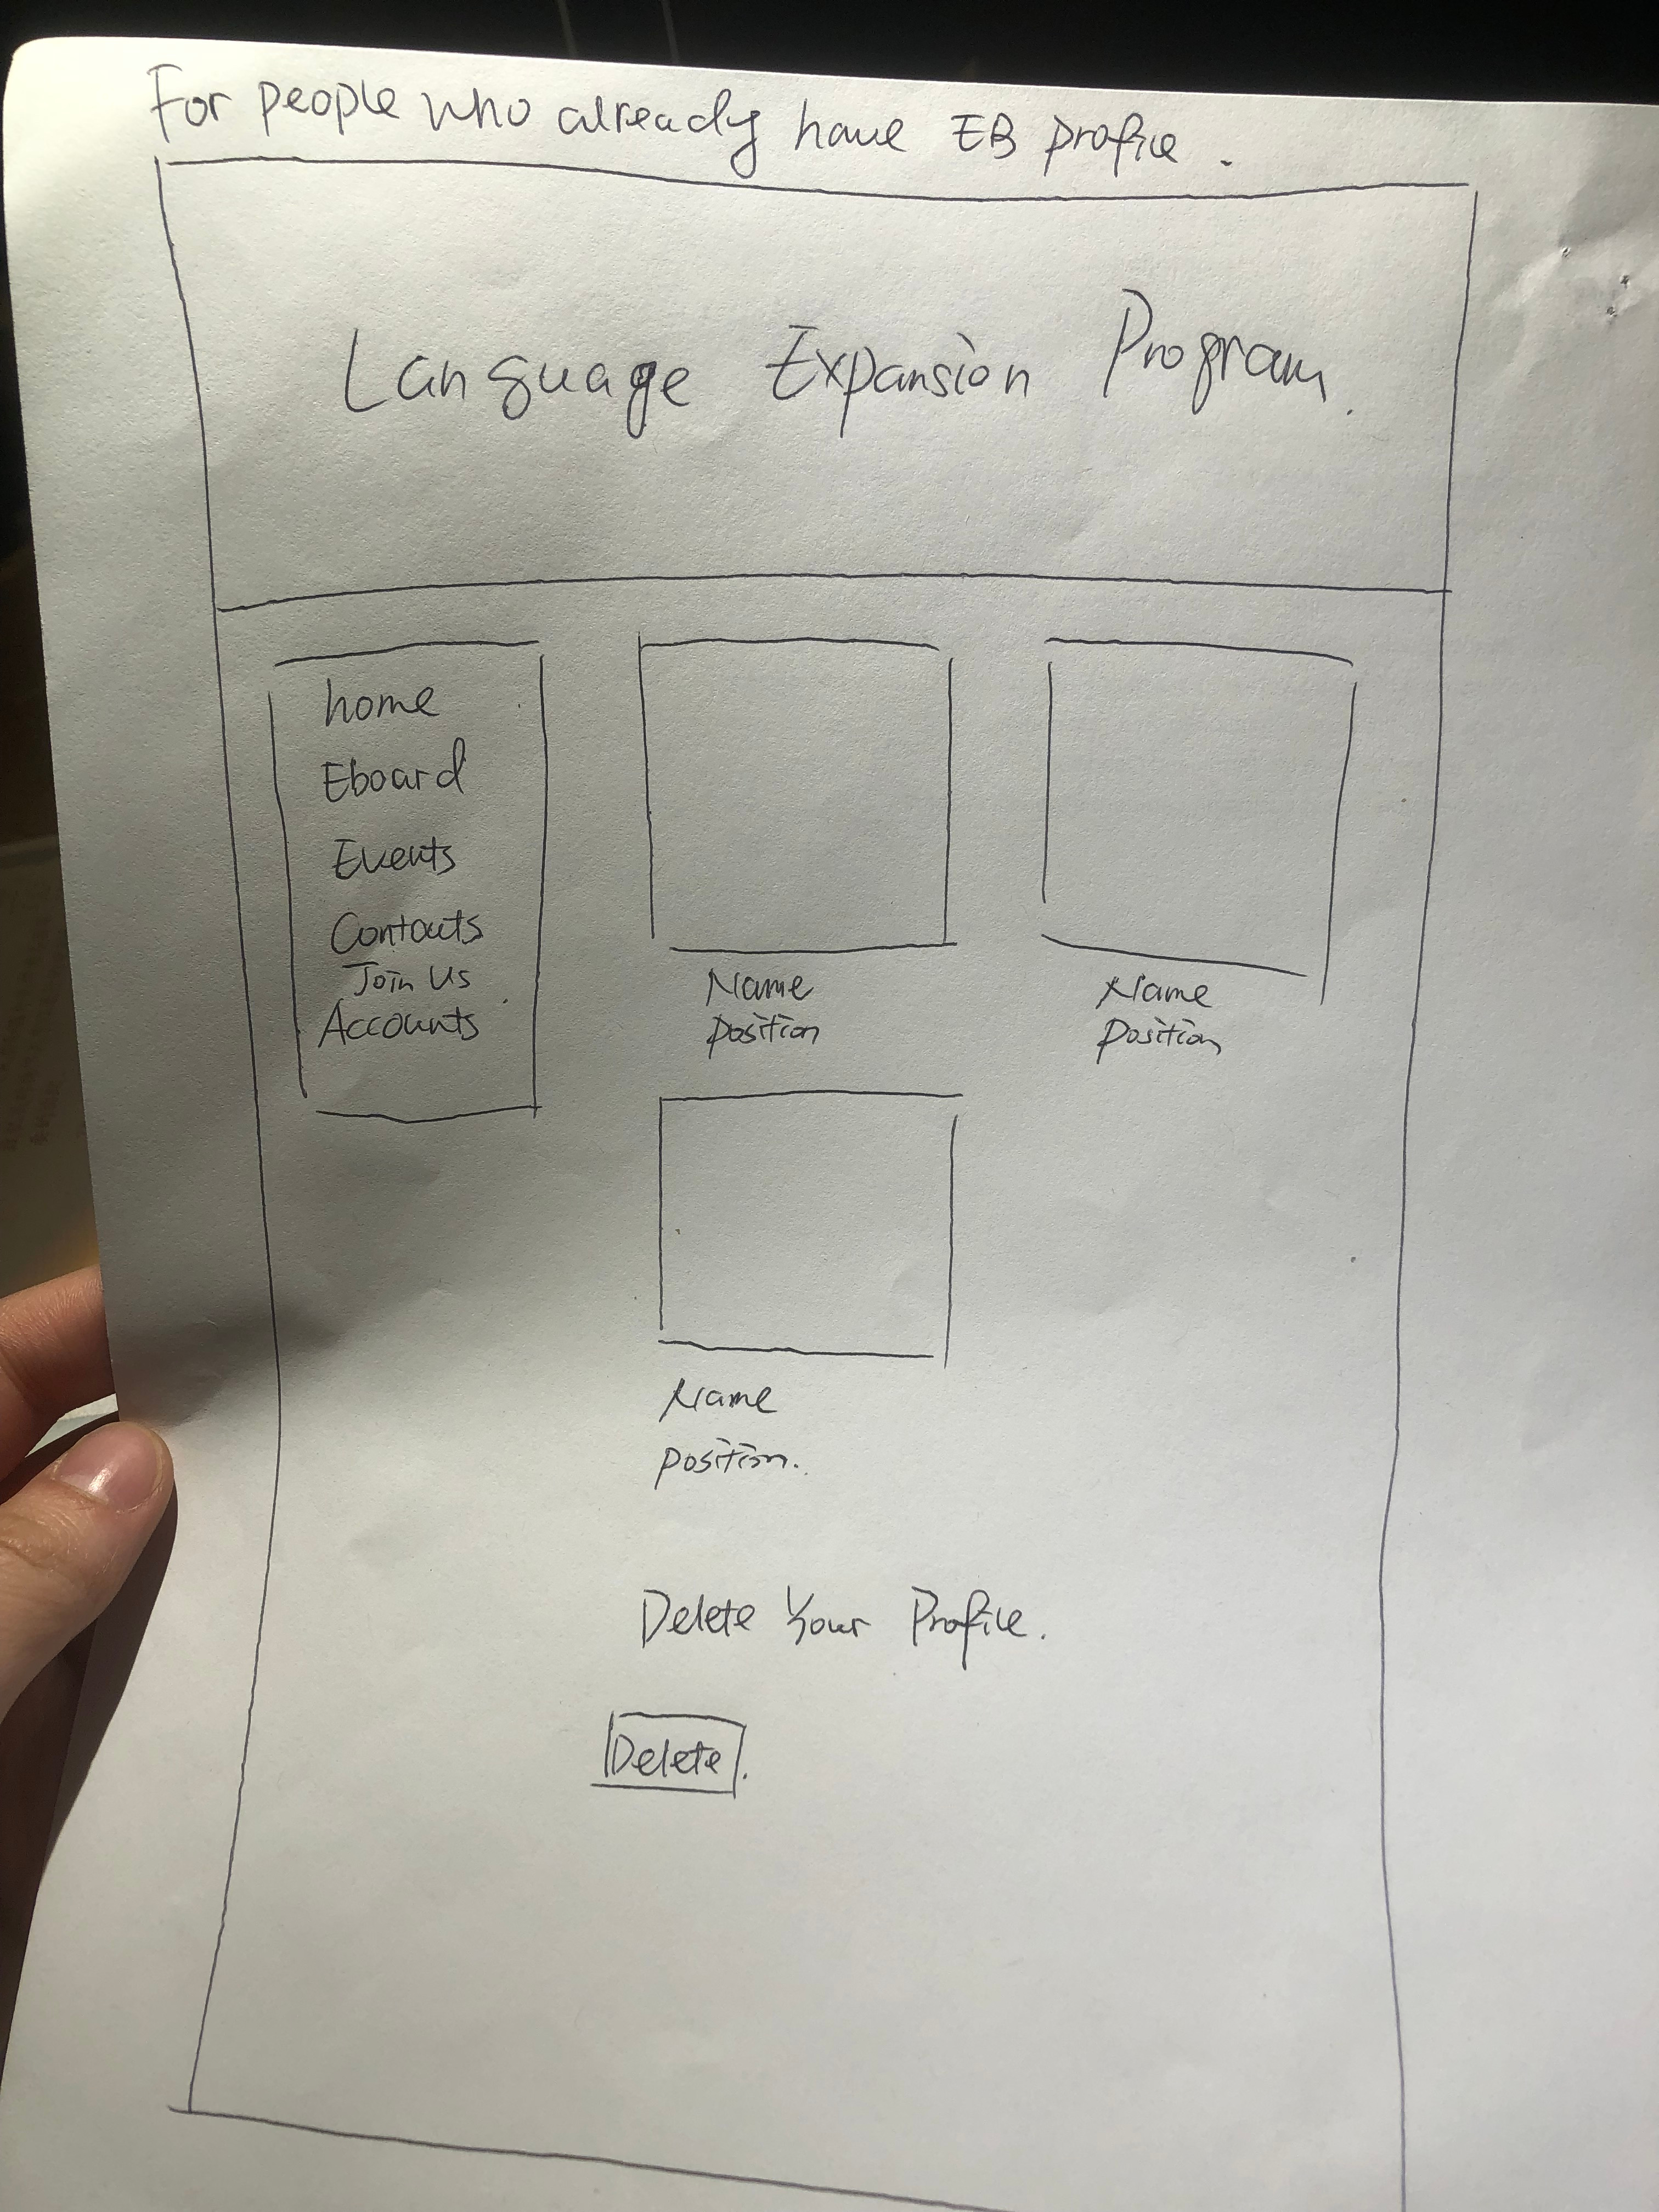 For people who already have EB profile.
Language Expansion Program.
home
Eboard
Events
Contacts
Join Us
Accounts
Name
position
Name
position
Name
position.
Delete Your Profile.
Delete.